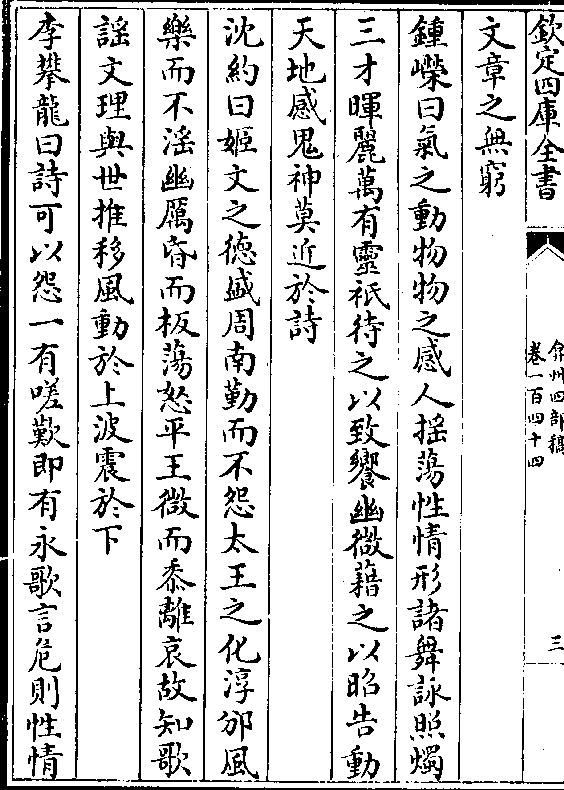 欽定四庫全書
弇州四部稿
卷一百四十四
三
文章之無窮
鍾嶸曰氣之動物物之感人揺蕩性情形諸舞詠照燭
三才暉麗萬有靈祇待之以致饗幽微藉之以昭告動
天地感鬼神莫近於詩
沈約曰姬文之徳盛周南勤而不怨太王之化淳邠風
樂而不淫幽厲昏而板蕩怒平王微而黍離哀故知歌
謡文理與世推移風動於上波震於下
李攀龍曰詩可以怨一有嗟歎即有永歌言危則性情